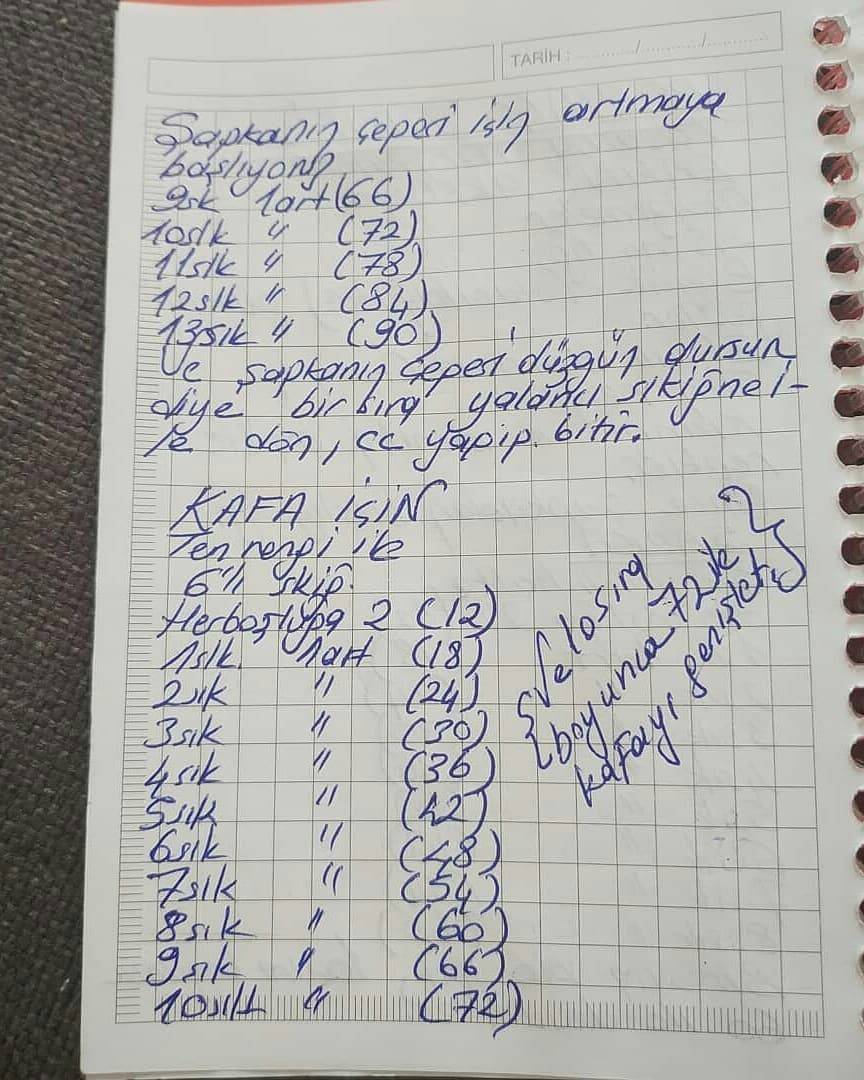 TARİH : ........../........../..........
Şapkanın çeperi için artmaya
başlıyoruz
9sk 1art (66)
10sık " (72)
11sik " (78)
12sık " (84)
13sık " (90)
Ve şapkanın çeperi düzgün dursun
diye bir sıra yalancı sıkiğne i-
le dön, cc yapıp. bitir.
KAFA İÇİN
Ten rengi ile
6'lı skiğ.
Herboşluğa 2 (12)
1sık. 1art (18)
2sık " (24)
3sık " (30)
4sık " (36)
5sık " (42)
6sık " (48)
7sık " (54)
8sık " (60)
9sık " (66)
10sık " (72)
{Ve 10sıra
boyunca 72 ile
kafayı genişlet.}